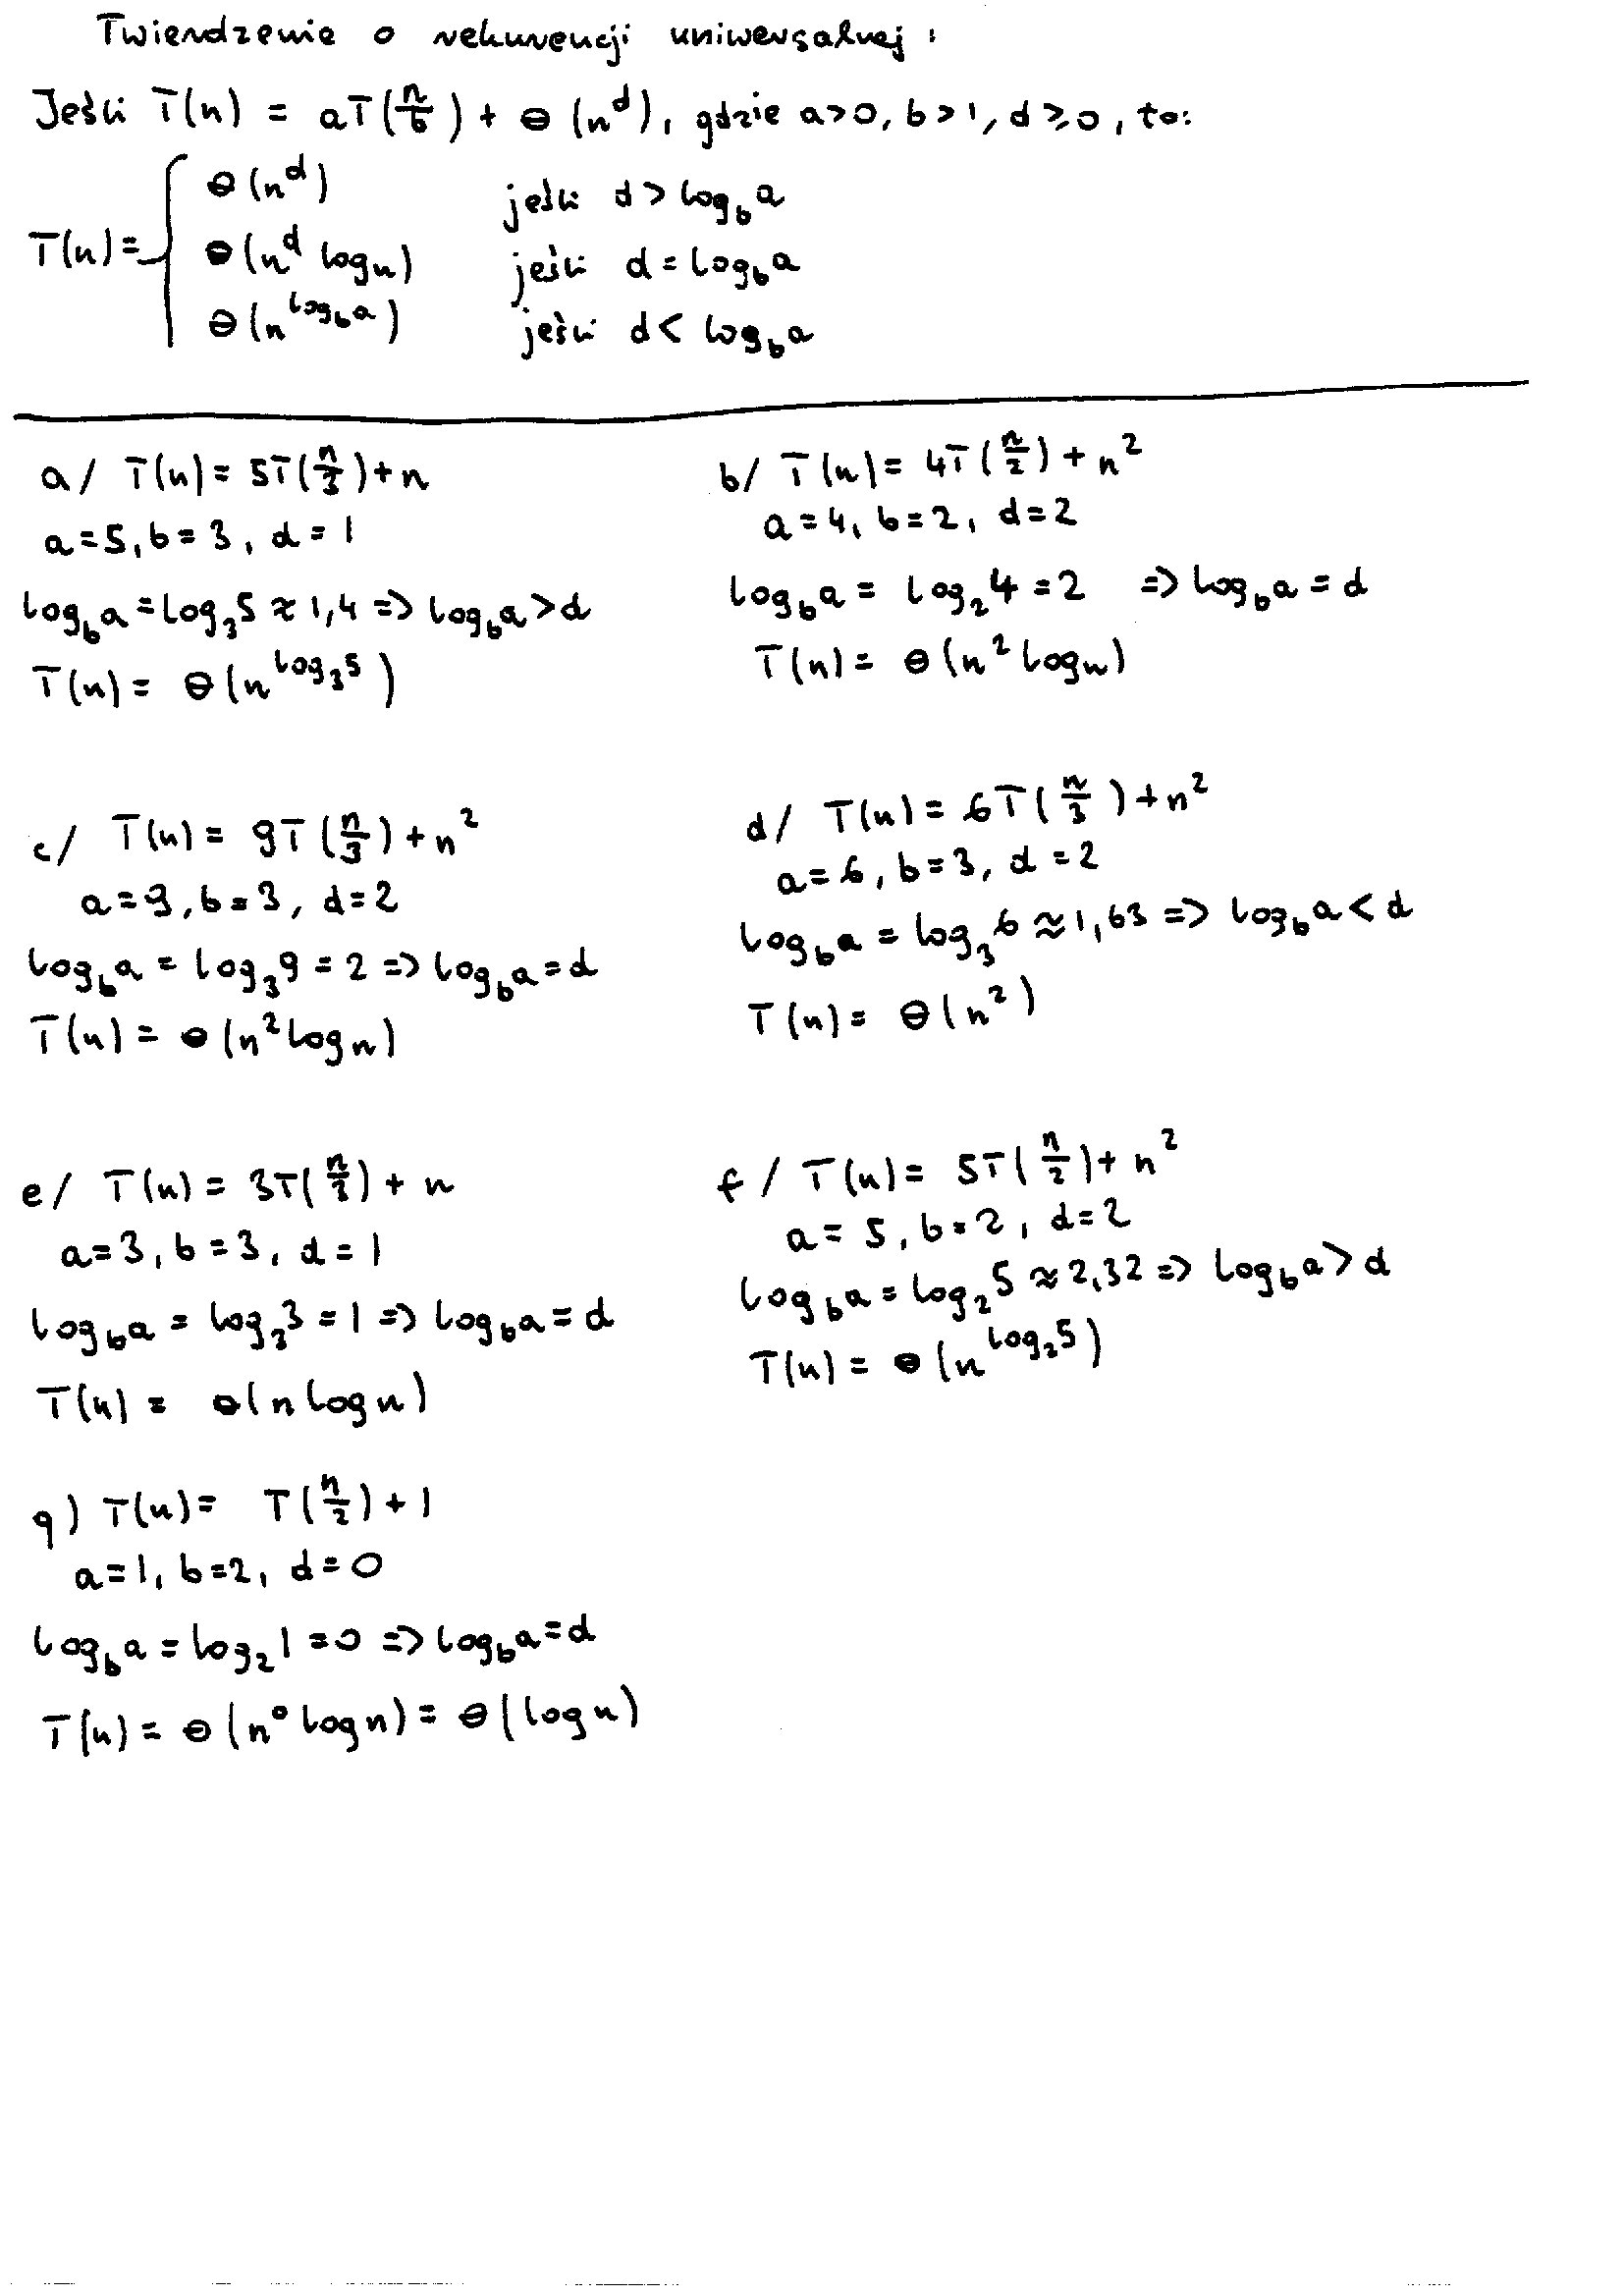 Twierdzenie o rekurencji uniwersalnej:
Jeśli T(n) = aT(n/b) + Θ(n^d), gdzie a>0, b>1, d≥0, to:
T(n) = {
Θ(n^d) jeśli d > log_b a
Θ(n^d log n) jeśli d = log_b a
Θ(n^(log_b a)) jeśli d < log_b a
a/ T(n) = 5T(n/3) + n
a=5, b=3, d=1
log_b a = log_3 5 ≈ 1,4 => log_b a > d
T(n) = Θ(n^(log_3 5))
b/ T(n) = 4T(n/2) + n^2
a=4, b=2, d=2
log_b a = log_2 4 = 2 => log_b a = d
T(n) = Θ(n^2 log n)
c/ T(n) = 9T(n/3) + n^2
a=9, b=3, d=2
log_b a = log_3 9 = 2 => log_b a = d
T(n) = Θ(n^2 log n)
d/ T(n) = 6T(n/3) + n^2
a=6, b=3, d=2
log_b a = log_3 6 ≈ 1,63 => log_b a < d
T(n) = Θ(n^2)
e/ T(n) = 3T(n/3) + n
a=3, b=3, d=1
log_b a = log_3 3 = 1 => log_b a = d
T(n) = Θ(n log n)
f/ T(n) = 5T(n/2) + n^2
a=5, b=2, d=2
log_b a = log_2 5 ≈ 2,32 => log_b a > d
T(n) = Θ(n^(log_2 5))
g) T(n) = T(n/2) + 1
a=1, b=2, d=0
log_b a = log_2 1 = 0 => log_b a = d
T(n) = Θ(n^0 log n) = Θ(log n)